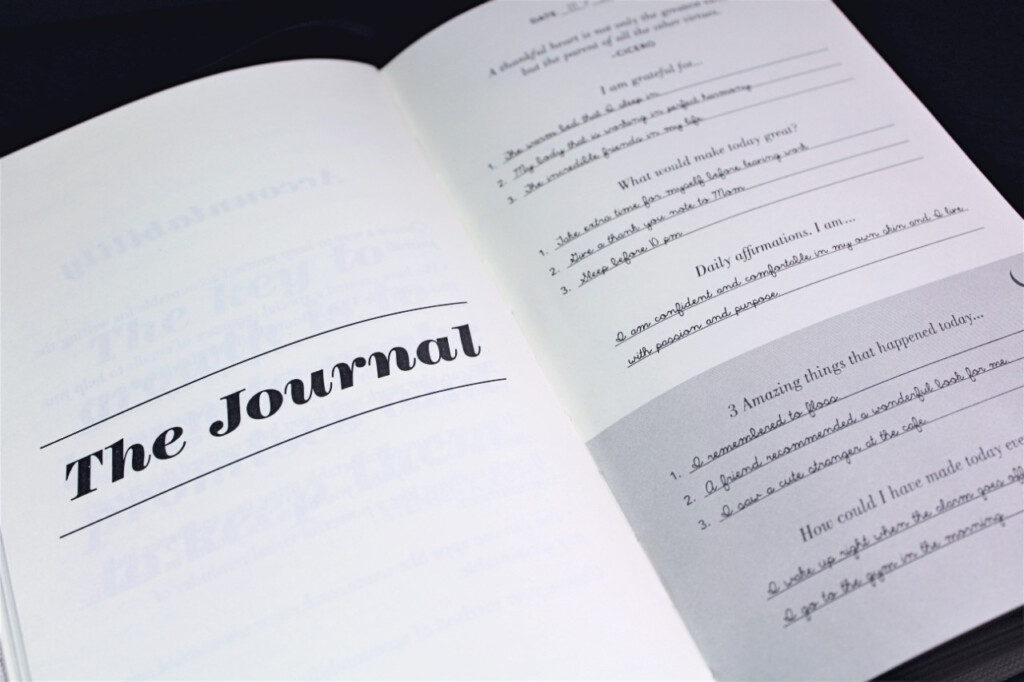 The Journal
DATE
A thankful heart is not only the greatest
but the parent of all the other virtues.
-CICERO
I am grateful for...
1. The warm bed that I sleep in
2. My body that is working in perfect harmony
3. The incredible friends in my life
What would make today great?
1. Take extra time for myself before leaving work
2. Give a thank you note to Mom
3. Sleep before 10 pm
Daily affirmations. I am...
I am confident and comfortable in my own skin and I live
with passion and purpose
3 Amazing things that happened today...
1. I remembered to floss
2. A friend recommended a wonderful book for me
3. I saw a cute stranger at the cafe
How could I have made today
I wake up right when the alarm goes
I go to the gym in the morning